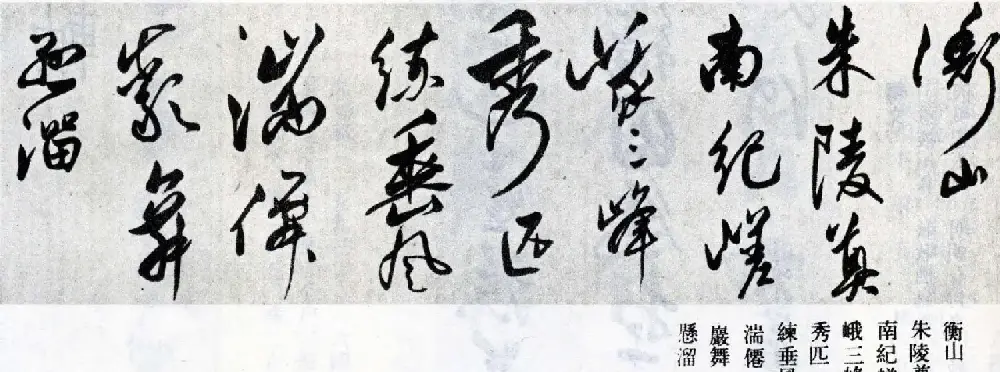 衡山
朱陵奠
南紀嵯
峨三峰
秀匹
練垂風
湍僊
巖舞
懸溜
衡山
朱陵奠
南紀嵯
峨三峰
秀匹
練垂風
湍僊
巖舞
懸溜